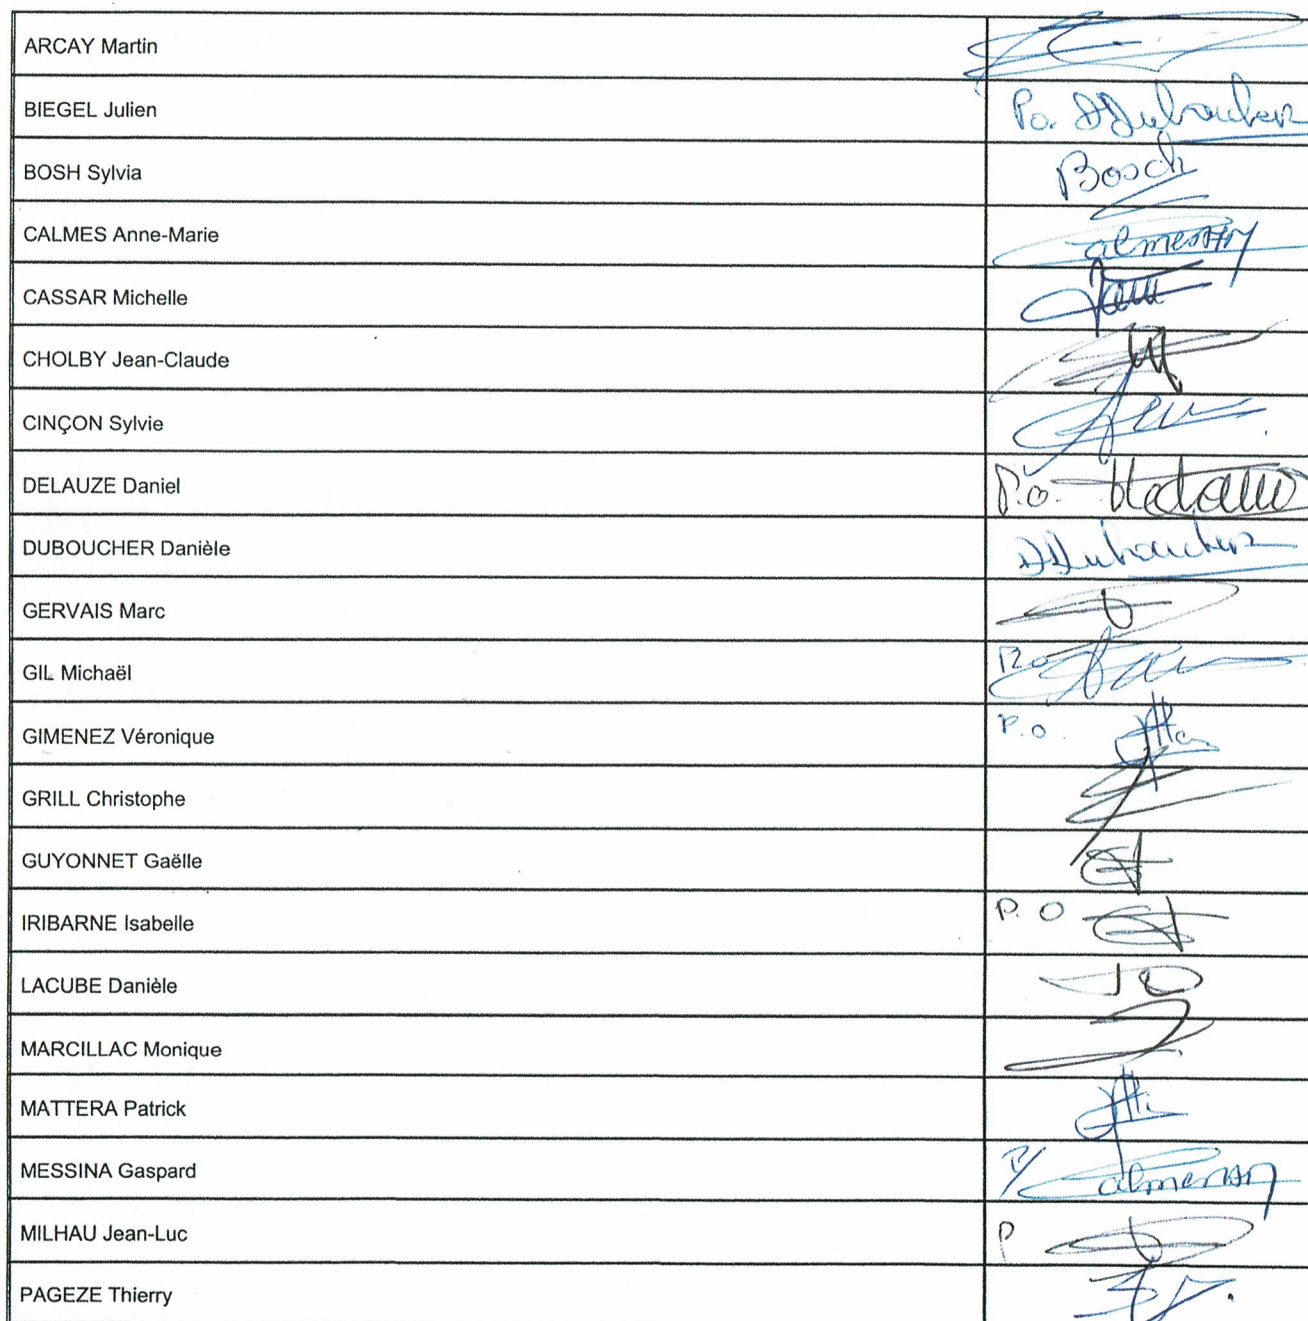 ARCAY Martin
BIEGEL Julien Po. DDuboucher
BOSH Sylvia Bosch
CALMES Anne-Marie CalmesAM
CASSAR Michelle
CHOLBY Jean-Claude
CINÇON Sylvie
DELAUZE Daniel P.o.
DUBOUCHER Danièle DDuboucher
GERVAIS Marc
GIL Michaël P.o
GIMENEZ Véronique P.o.
GRILL Christophe
GUYONNET Gaëlle
IRIBARNE Isabelle P.O
LACUBE Danièle
MARCILLAC Monique
MATTERA Patrick
MESSINA Gaspard P/ CalmesAM
MILHAU Jean-Luc P
PAGEZE Thierry